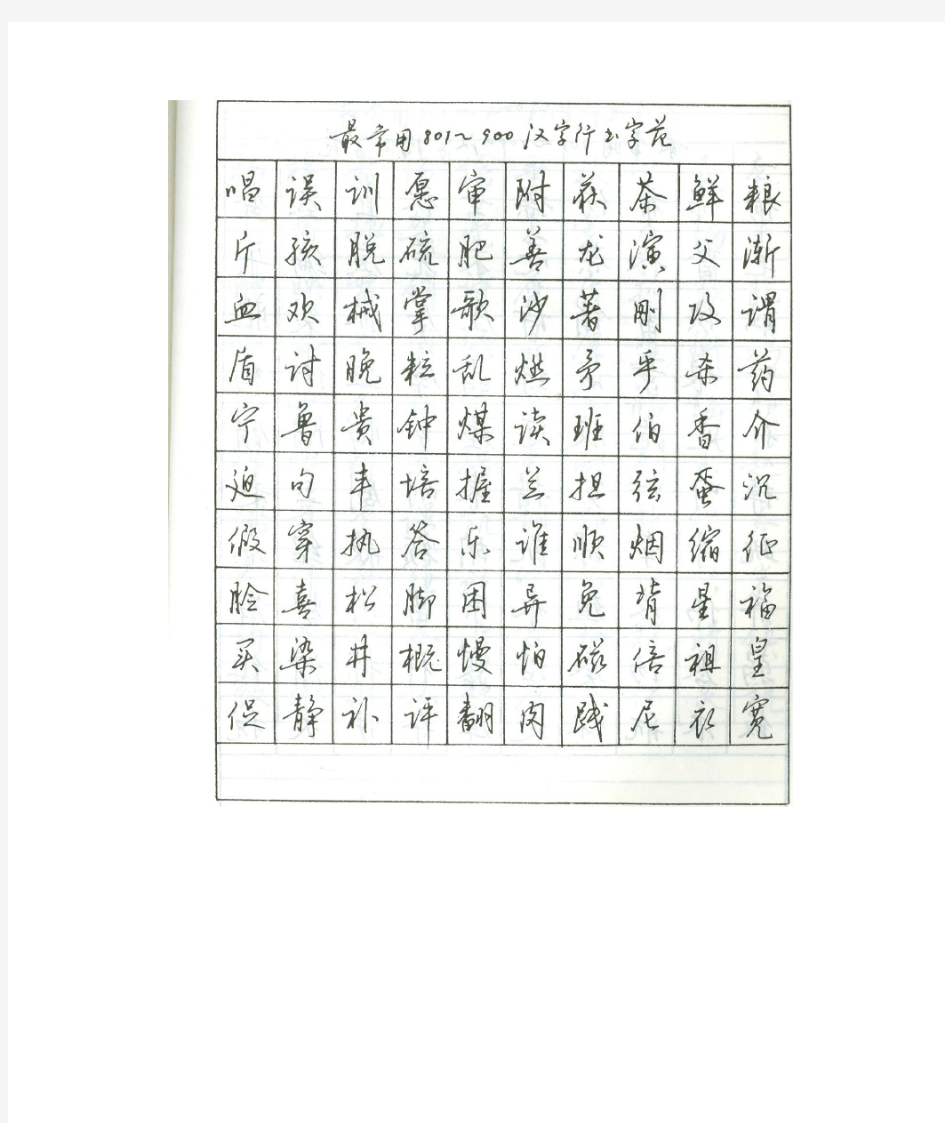 最常用801~900汉字行书字范
唱 误 训 愿 审 附 获 茶 鲜 粮
斤 孩 脱 硫 肥 善 龙 演 父 渐
血 欢 械 掌 歌 沙 著 刚 攻 谓
盾 讨 晚 粒 乱 燃 矛 乎 杀 药
宁 鲁 贵 钟 煤 读 班 伯 香 介
迫 句 丰 培 握 兰 担 弦 蛋 沉
假 穿 执 答 乐 谁 顺 烟 缩 征
脸 喜 松 脚 困 异 免 背 星 福
买 染 井 概 慢 怕 磁 倍 祖 皇
促 静 补 评 翻 肉 践 尼 衣 宽